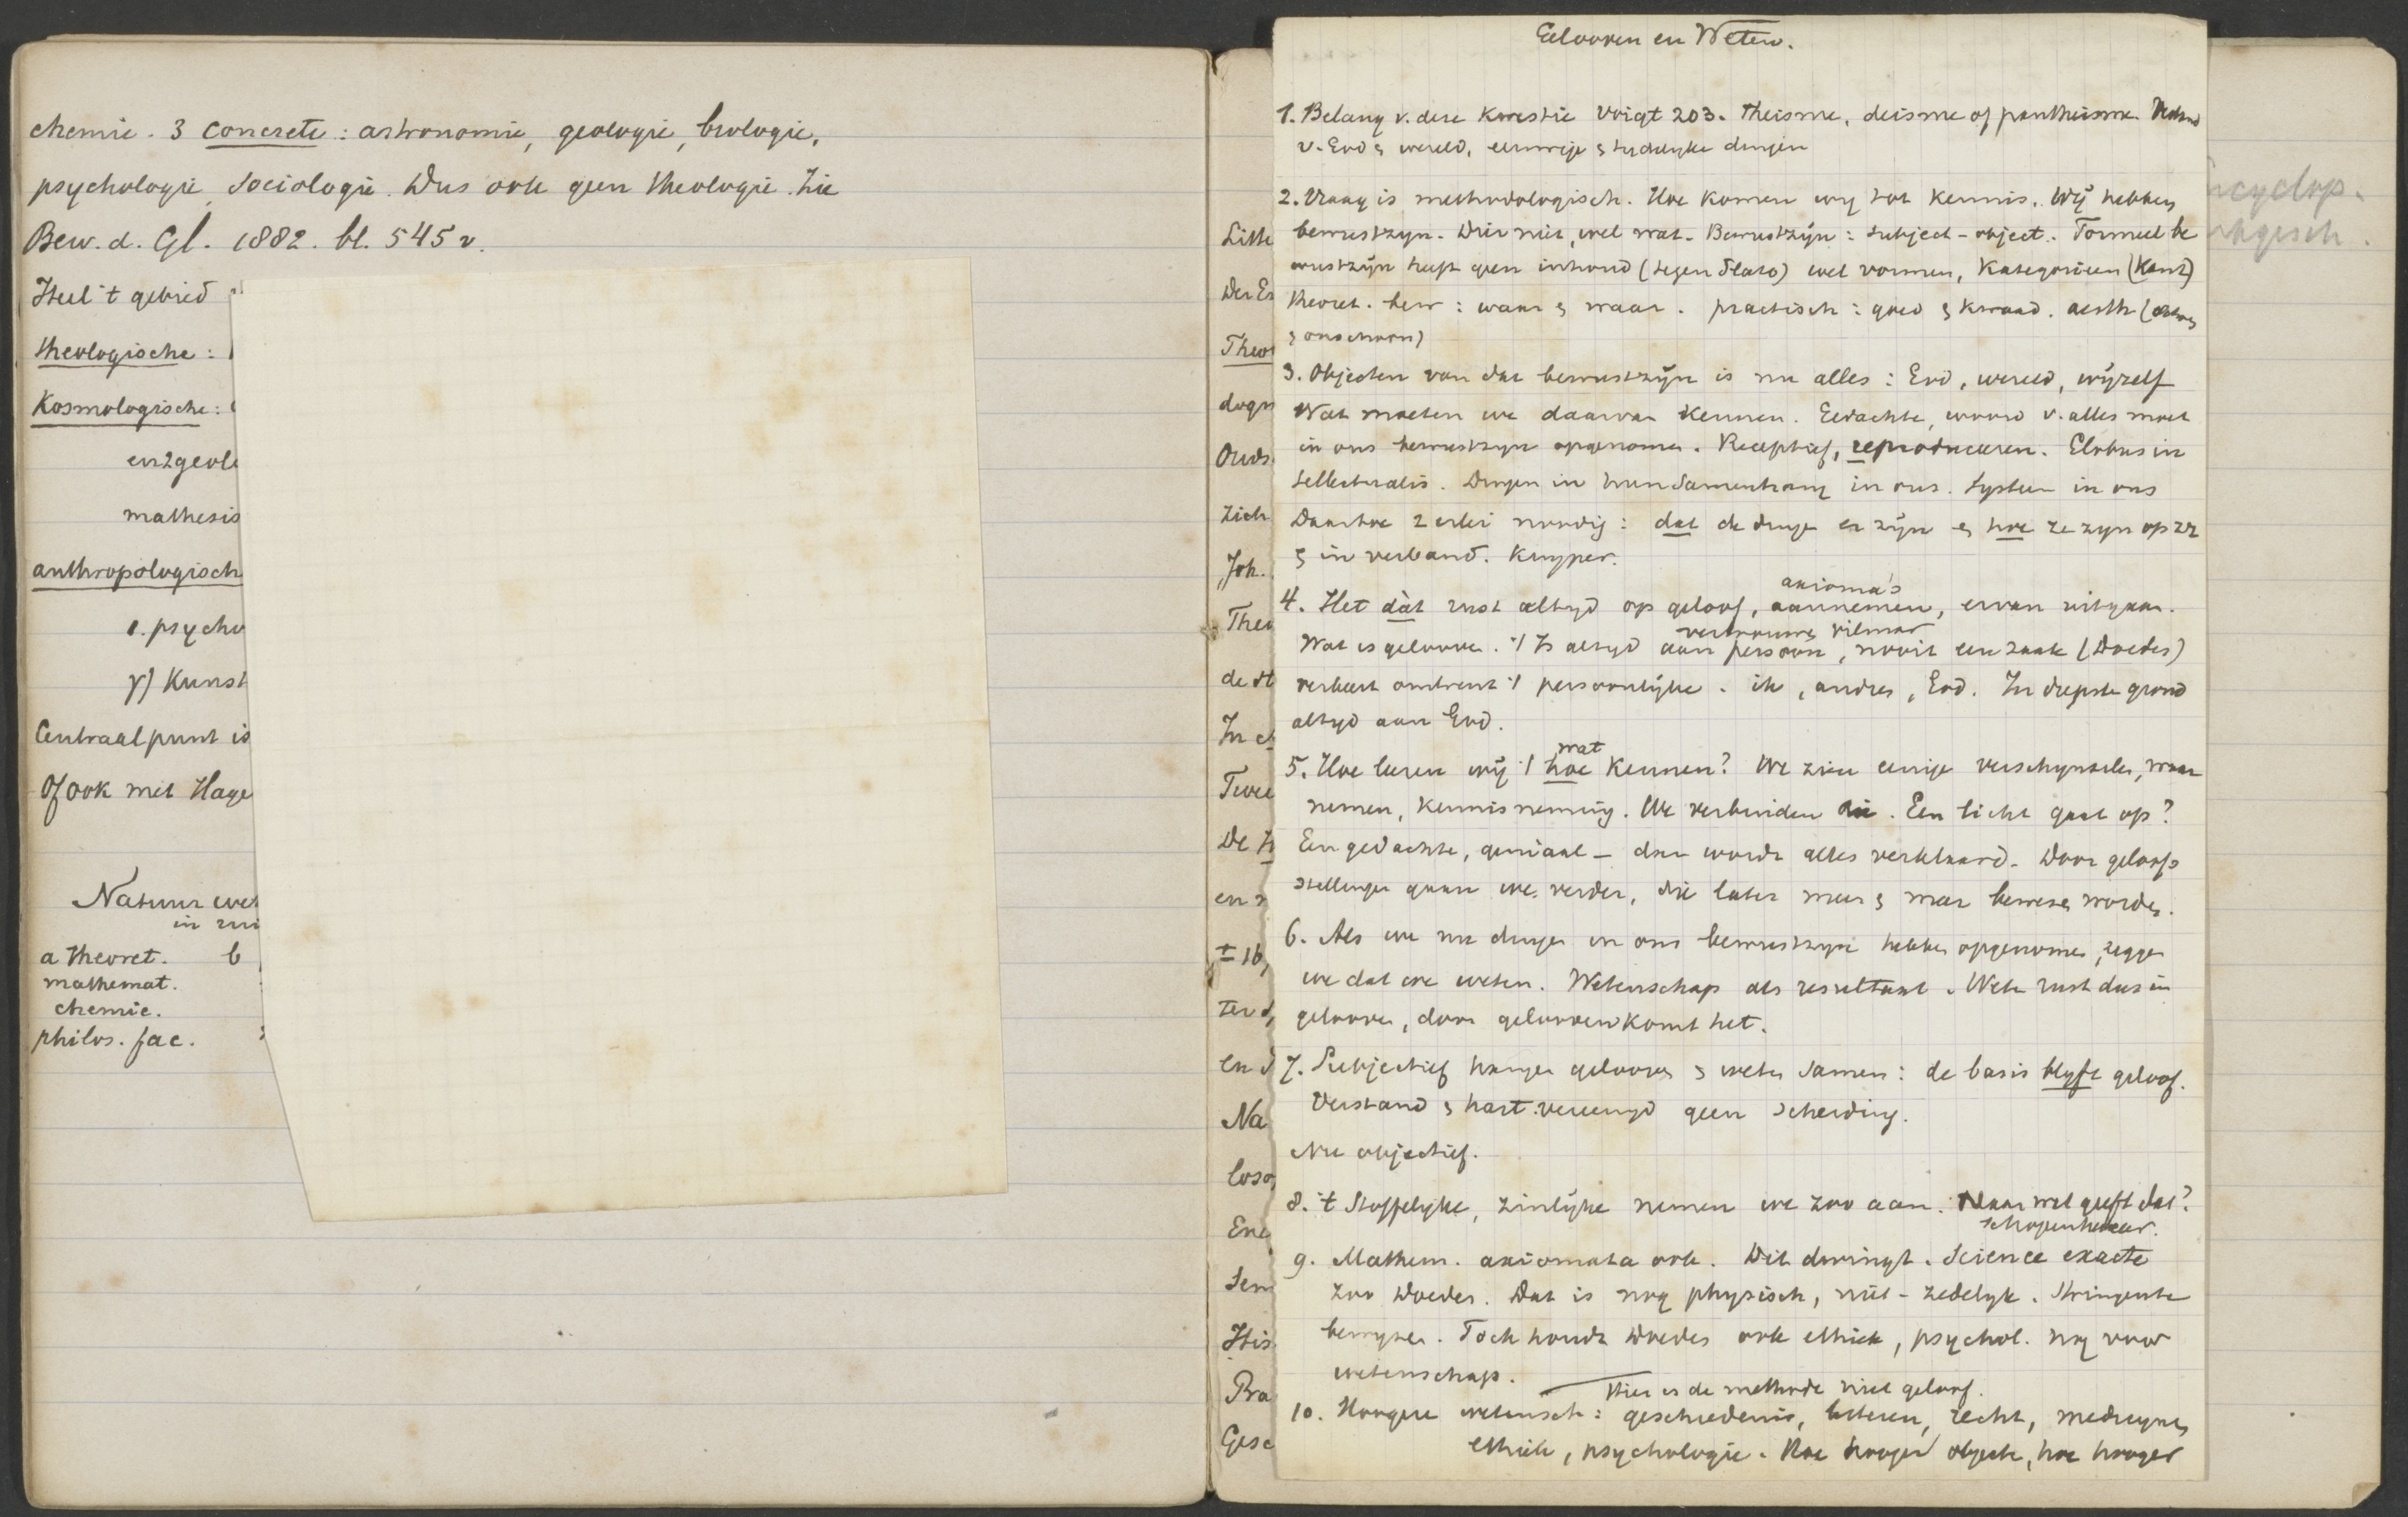 chemie. 3 concrete: astronomie, geologie, biologie,
psychologie, sociologie. Dus ook geen theologie. Zie
Bew. d. Gl. 1882. bl. 545 v.
Heel 't gebied
theologische:
Kosmologische:
en 2 geol
mathesis
anthropologisch
1. psycho
γ) Kunst
Centraalpunt is
Of ook met Hage
Natuur wet
in
a theoret. b
mathemat.
chemie.
philos. fac.
Litte
Der
Theo
dogm
Ouds
Zich
Joh.
Theo
de
In
Twee
De
en
± 16,
ter
en
Na
loso
Enc
Sem
His
Pra
Gesc
Gelooven en Weten.
1. Belang v. deze kwestie Voigt 203. Theisme, deisme of pantheisme.
v. God & wereld, eeuwige & tydelyke dingen
2. Vraag is methodologisch. Hoe komen wy tot kennis. Wij hebben
bewustzyn. Dier niet, wel wat. Bewustzijn: subject-object. Formeel be
wustzijn heeft geen inhoud (tegen Plato) wel vormen, Kategorieën (Kant)
theoret. bew: waar & waar. practisch: goed & kwaad. aesth (
& onschoon)
3. Objecten van dat bewustzijn is nu alles: God, wereld, wijzelf
Wat moeten we daarvan kennen. Gedachte, woord v. alles moet
in ons bewustzyn opgenomen. Receptief, reproduceeren. Globus in
tellectualis. Dingen in hun samenhang in ons. Systeem in ons
Daartoe 2 erlei noodig: dat de dinge er zijn & hoe ze zyn op zz
& in verband. Kuyper.
axioma's
4. Het dàt rust altyd op geloof, aannemen, ervan uitgaan.
vertrouwen Vilmar
Wat is geloove. 't Is altyd aan persoon, nooit een zaak (Doedes)
verkeert omtrent 't persoonlijke. ik, andres, God. In diepste grond
altyd aan God.
wat
5. Hoe leeren wij 't hoe kennen? We zien eenige verschynselen, waar
nemen, kennisneming. We verbinden die. Een licht gaat op?
Een gedachte, geniaal – dan wordt alles verklaard. Door geloofs
stellingen gaan we verder, die later meer & meer bewezen worden.
6. Als we nu dingen in ons bewustzyn hebben opgenomen, zeggen
we dat we weten. Wetenschap als resultaat. Weten rust dus in
gelooven, door gelooven komt het.
7. Subjectief hangen gelooven & weten samen: de basis blyft geloof.
Verstand & hart vereenigd geen scheiding.
Nu objectief.
8. 't Stoffelyke, zinlijke nemen we zoo aan. Maar wat geeft dat?
Schopenhauer.
9. Mathem. axiomata ook. Dit dwingt. Science exacte
zoo Doedes. Dat is nog physisch, niet-zedelyk. Stringente
bewyzen. Toch houdt Doedes ook ethiek, psychol. nog voor
wetenschap.
Hier is de methode niet geloof.
10. Hoogere wetensch: geschiedenis, letteren, recht, medicynen,
ethiek, psychologie. Hoe hooger objecte, hoe hooger
ncyclop.